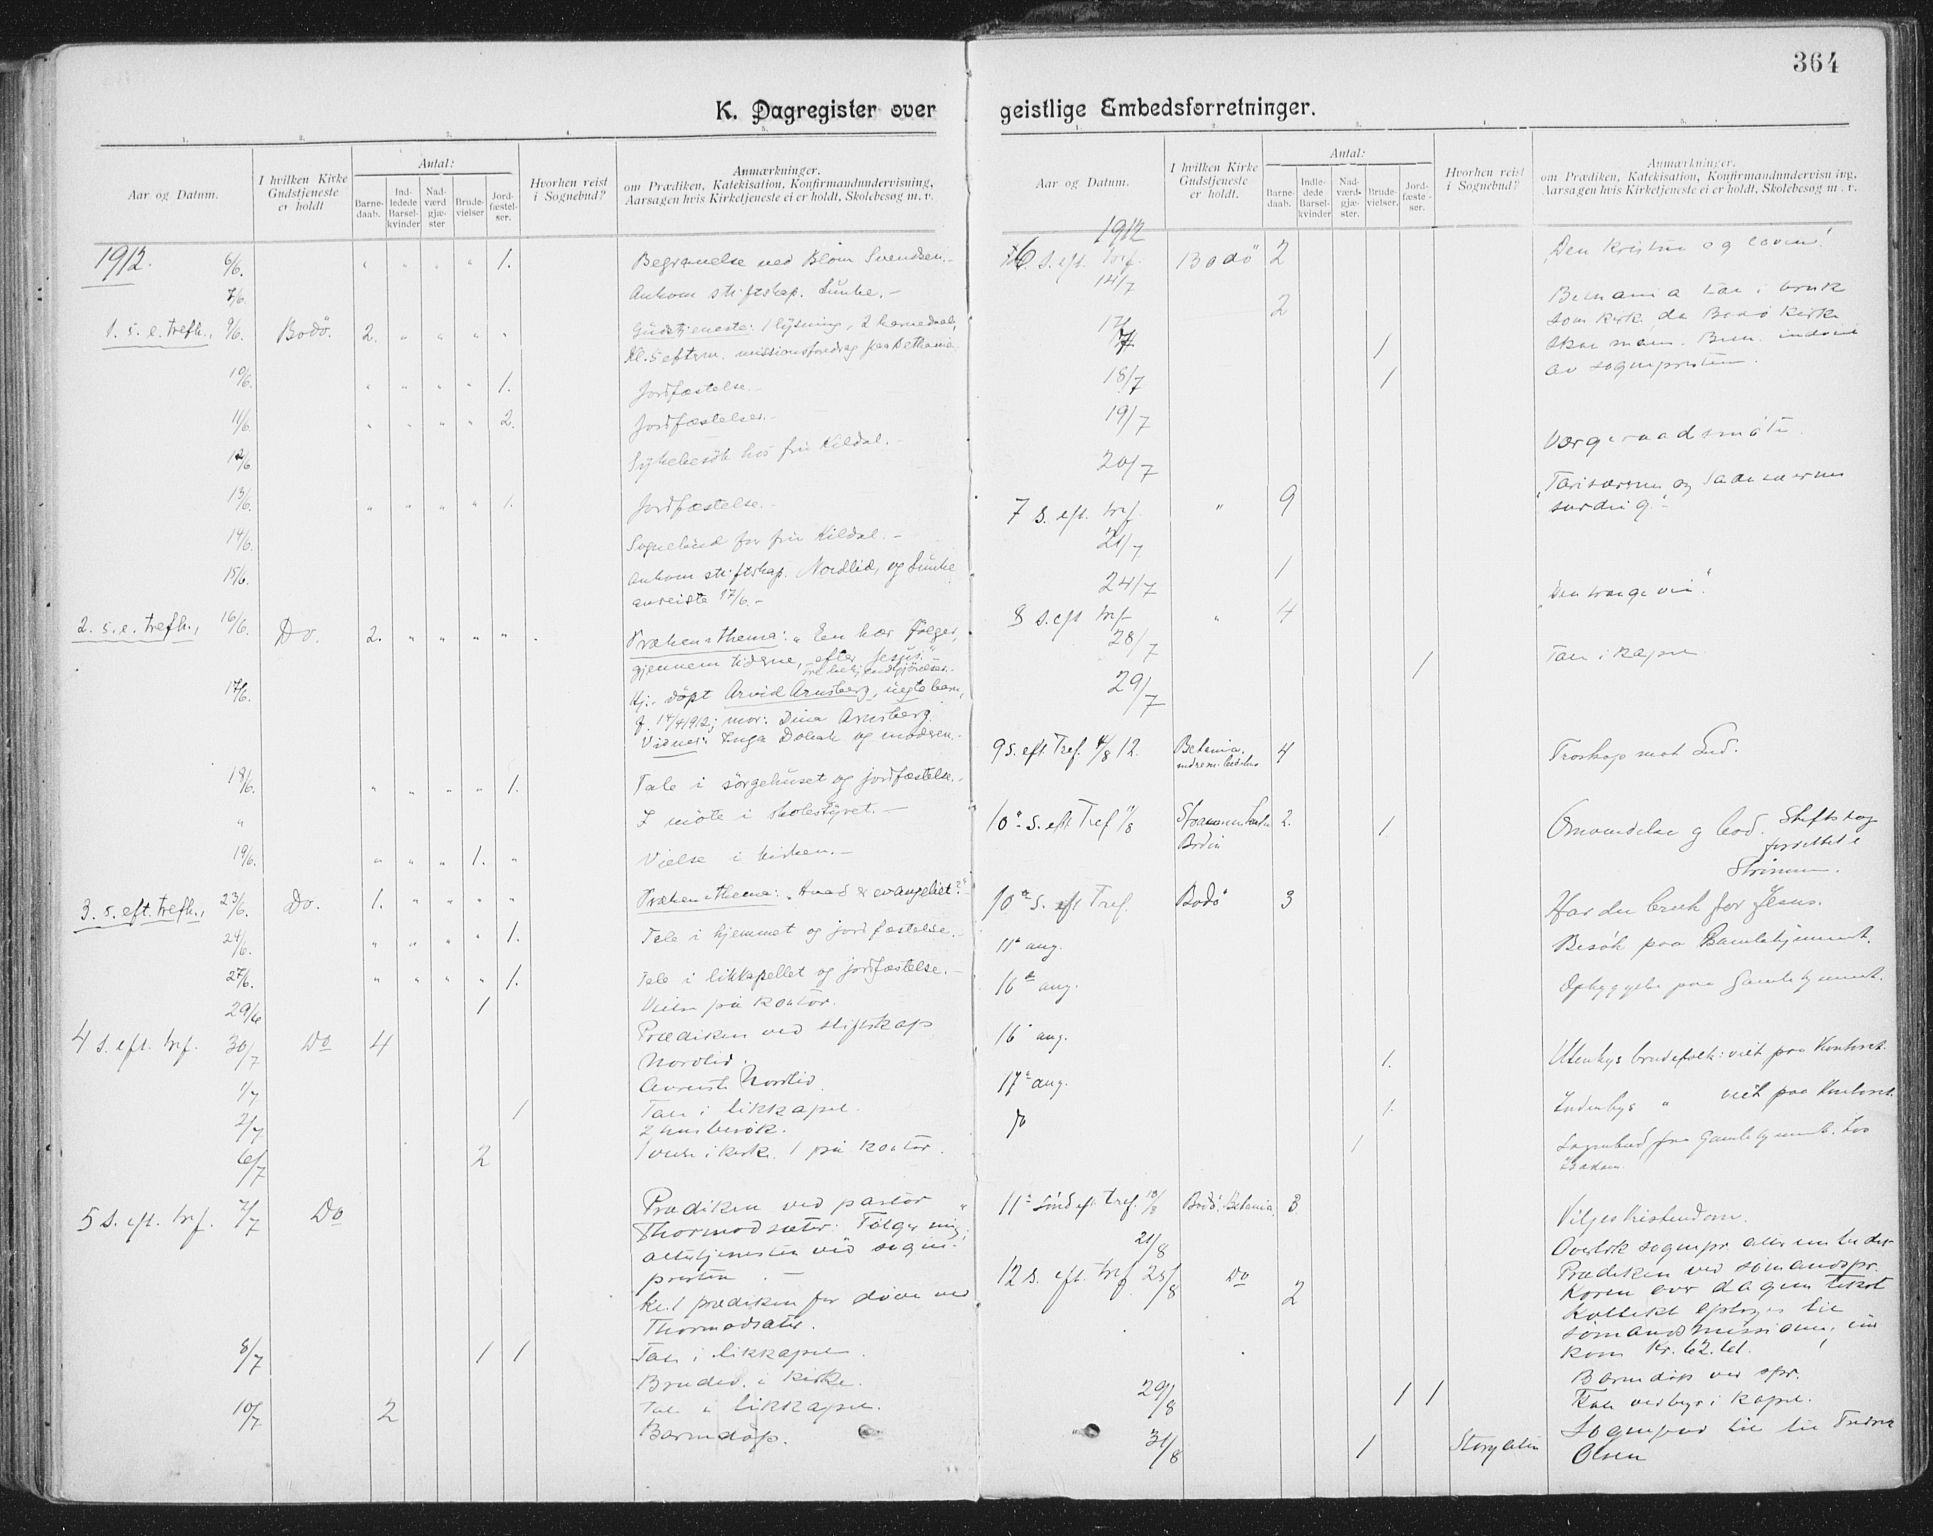 364
K. Dagregister over geistlige Embedsforretninger.
1. 2. 3. 4. 5.
Aar og Datum.
I hvilken Kirke Gudstjeneste er holdt
Antal:
Barnedaab.
Indledede Barselkvinder
Nadværdgjæster
Brudevielser
Jordfæstelser.
Hvorhen reist i Sognebud?
Anmærkninger.
om Prædiken, Katekisation, Konfirmandundervisning,
Aarsagen hvis Kirketjeneste ei er holdt, Skolebesøg m. v.
1912. 6/6. " " " " 1. Begravelse ved Blom Svendsen.-
7/6. Ankom stiftskap. Lunke.-
1. s. e. trefh., 9/6. Bodö. 2. " " " " Gudstjeneste: 1 lysning, 2 barnedaab,
Kl. 5 eftm. missionsforedrag paa Bethania.
10/6. " " " " 1. Jordfæstelse.-
11/6. " " " " 2. Jordfæstelser.-
12/6 Sykebesök hos fru Kildal.-
13/6. " " " " 1. Jordfæstelse.-
14/6. Sognebud for fru Kildal.-
15/6. Ankom stiftskap. Nordlid, og Lunke
avreiste 17/6.-
2. s. e. trefh., 16/6. Do. 2. " " " " Præken: thema: "En hær følger,
gjennem tiderne, efter Jesus."
17/6. Hj. döpt Arvid Arnsberg, uegte barn,
f. 14/4 1912; mor: Dina Arnsberg.
Vidner: Inga Dolak og moderen.-
18/6. " " " " 1. Tale i sörgehuset og jordfæstelse.-
" I möte i skolestyret.-
19/6. " " " 1. " Vielse i kirken.-
3. s. eft. trefh., 23/6. Do. 1. " " " " Præken: thema: "Hvad er evangeliet?"
24/6. " " " " 1. Tale i hjemmet og jordfæstelse.-
27/6. " " " " 1. Tale i likkapellet og jordfæstelse.-
29/6 1 Vielse på kontor.
4 s. eft. tref. 30/7 Do 4 Prædiken ved stiftskap
Nordlid.
1/7 Avreiste Nordlid.
2/7 1 Tale i likkapel.
2 husbesøk.
6/7 2 1 vielse i kirke. 1 på kontor.
5 s. eft. tref. 7/7 Do Prædiken ved pastor
Thormodsæter: "Følg mig",
altertjenesten ved sogne-
presten.-
kl. 1 prædiken for døve ved
Thormodsæter.
8/7 1 1 Tale i likkapel.
Brudev. i kirke.
10/7 2 Tale i likkapel.
Barnedåp.
1. 2. 3. 4. 5.
Aar og Datum.
I hvilken Kirke Gudstjeneste er holdt.
Antal:
Barnedaab.
Indledede Barselkvinder
Nadværdgjæster.
Brudevielser.
Jordfæstelser.
Hvorhen reist i Sognebud?
Anmærkninger.
om Prædiken, Katekisation, Konfirmandundervisning,
Aarsagen hvis Kirketjeneste ei er holdt, Skolebesøg m. v.
1912
6. s. eft. tref. 14/7 Bodö 2 Den kristne og loven!
2 Betania tas i bruk
som kirke, da Bodø kirke
17/7 1 skal males. Bet. indviet
av sognepresten.
18/7 1
19/7 Værgeraadsmøte.
20/7
7 s. eft. tref. 21/7 " 9 "Farisæernes og sadducæernes
surdeig."
24/7 1
8 s. eft. tref. 28/7 " 4 "Den trange vei".
29/7 1 Tale i kapel
9 s. eft. Tref. 4/8 12. Betania. 4 Troskap mot Gud.
10de s. eft. Tref 11/8 2. 1. Omvendelse og bod. Stiftskap
Bodin forrettet i
Strömmen.
10de s. eft Tref. Bodö 3 Har du bruk for Jesus.
11te aug. Besök paa Gamlehjemmet.
16de aug. Opbyggelse paa Gamlehjemmet.
16de aug. 1. Utenbys brudefolk: viet paa Kontoret.
17de aug. 1. Indenbys " viet paa Kontoret.
Do 1 Sognebud fra Gamlehjemmet.
11te Sönd eft tref. 18/8 Bodö. Betania 3 Viljeskristendom.
21/8 Overtok sognepr. atter embedet
12 s. eft. tref 25/8 Do 2 Prædiken ved sömandspr.
Koren over dagens tekst
Kollekt optoges til
sømandsmissionen, ind
kom kr. 62.61.
Barnedåp ved spr.
29/8 1 1 Tale i kapel.
31/8 1 Sognebud til
Olsen